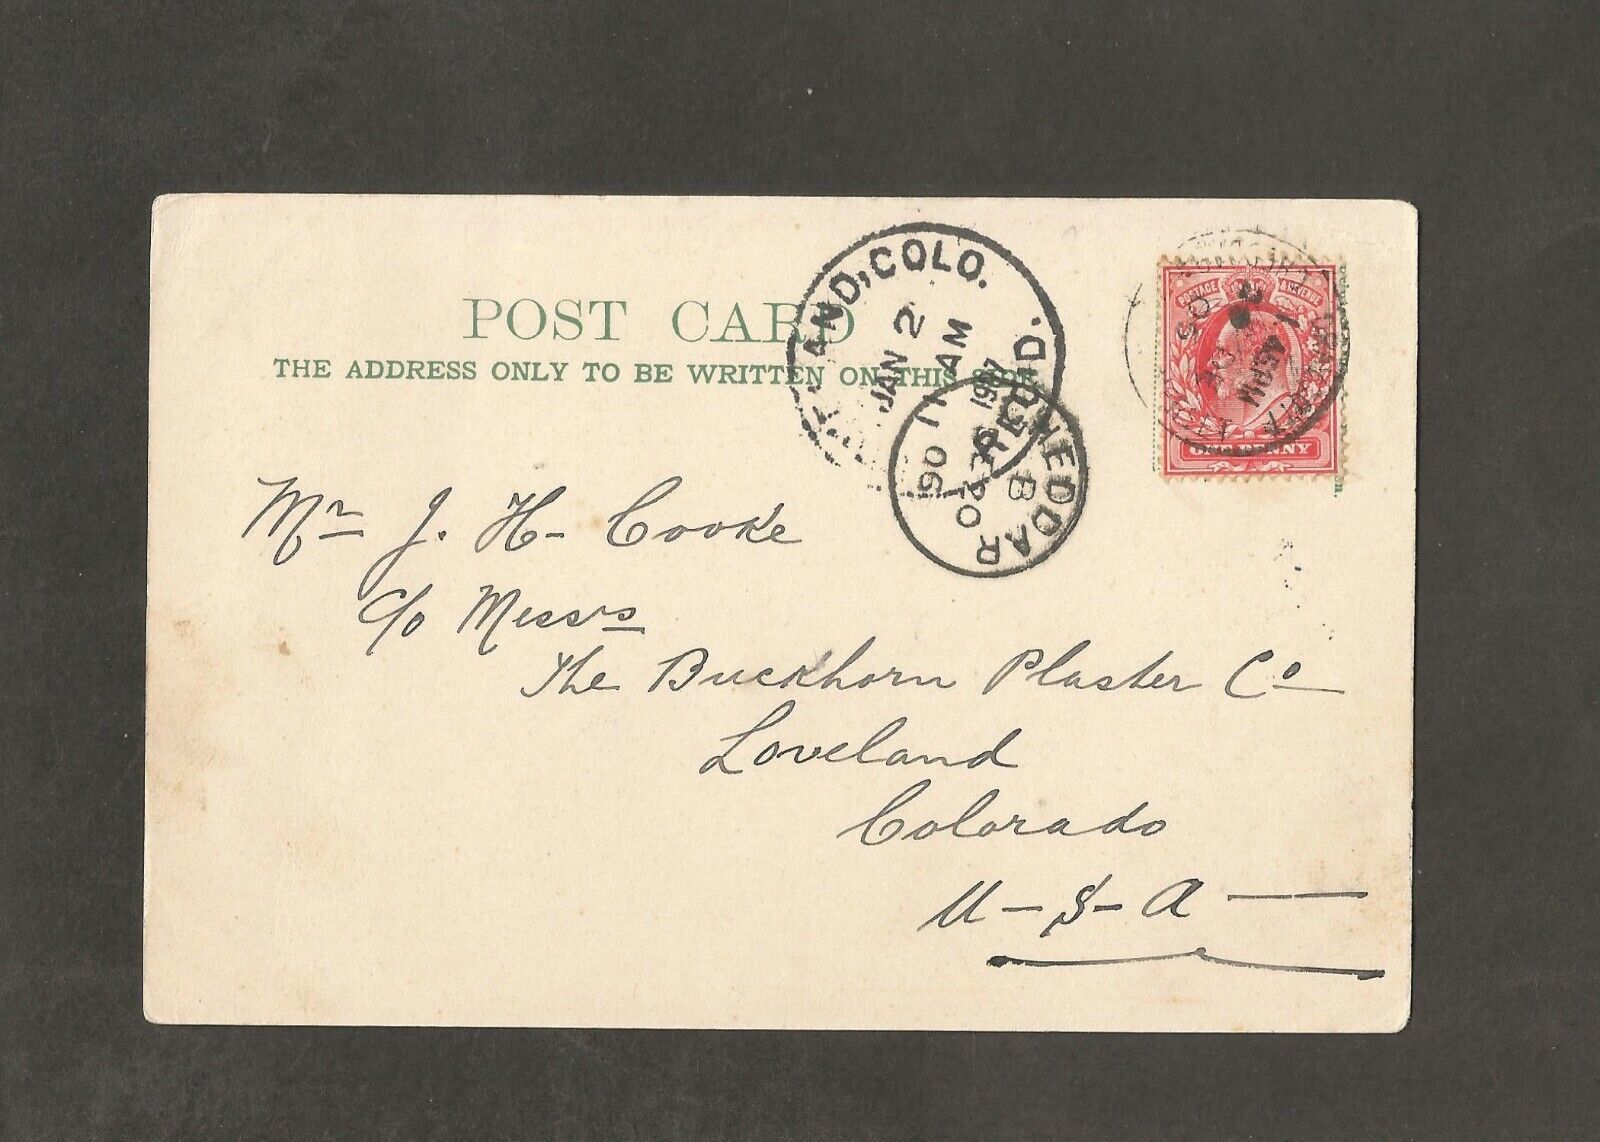 POST CARD
THE ADDRESS ONLY TO BE WRITTEN ON THIS SIDE
LAND, COLO.
JAN 2
11 AM
1907
REC'D.
CHEDDAR
B
DE 20
06
POSTAGE & REVENUE
ONE PENNY
1 45PM
05
Mr J. H- Cooke
c/o Messrs
The Buckhorn Plaster Co
Loveland
Colorado
U-S-A